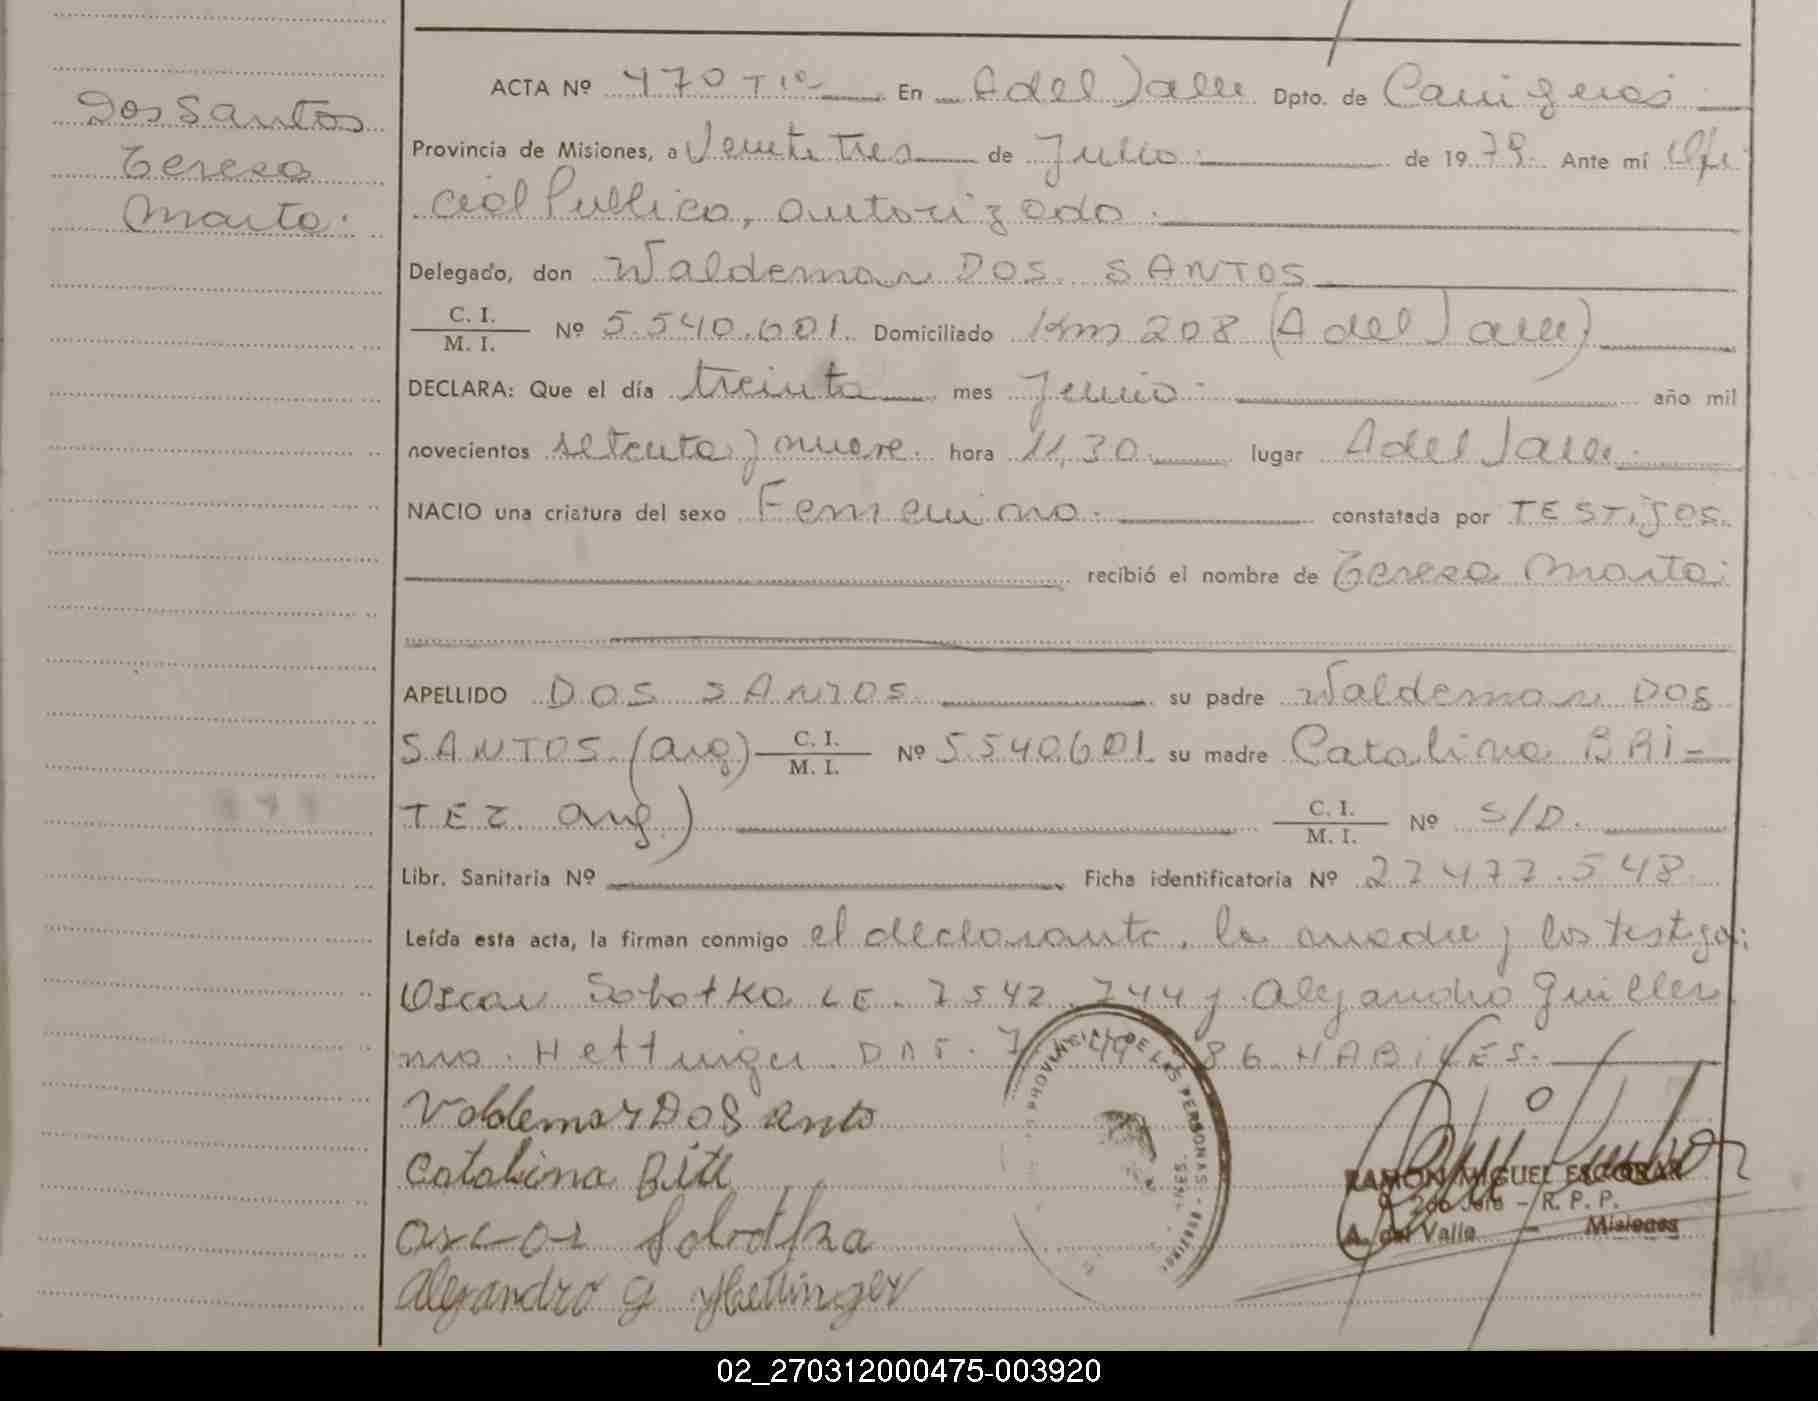 Dos Santos
Teresa
Marta.
ACTA Nº 470 T1º En A del Valle Dpto. de Cainguas
Provincia de Misiones, a Veinte tres de Julio. de 1979. Ante mí Ofi
cial Publico, autorizado.
Delegado, don Waldemar DOS. SANTOS
C. I.
M. I. Nº 5.540.601. Domiciliado Km 208 (A del Valle)
DECLARA: Que el día treinta mes Junio. año mil
novecientos setenta y nueve. hora 11,30 lugar A del Valle.
NACIO una criatura del sexo Femenino. constatada por TESTIJOS.
recibió el nombre de Teresa Marta.
APELLIDO DOS SANTOS. su padre Waldemar DOS
SANTOS. (arg) C. I. M. I. Nº 5.540.601. su madre Catalina BRI-
TEZ arg.) C. I. M. I. Nº S/D.
Libr. Sanitaria Nº Ficha identificatoria Nº 27477.548
Leída esta acta, la firman conmigo el declarante, la madre y los testigos:
Oscar Sobotka LE. 7542.744 y Alejandro Guiller
mo. Hettinger. DNI. 86 HABILES.
Valdemar DOS anto
Catalina Bite
oscar Sobotka
Alejandro G Hettinger
PROVINCIA DE LAS PERSONAS
RAMON MIGUEL ESCOBAR
2do Jefe - R. P. P.
A. del Valle - Misiones
02_270312000475-003920